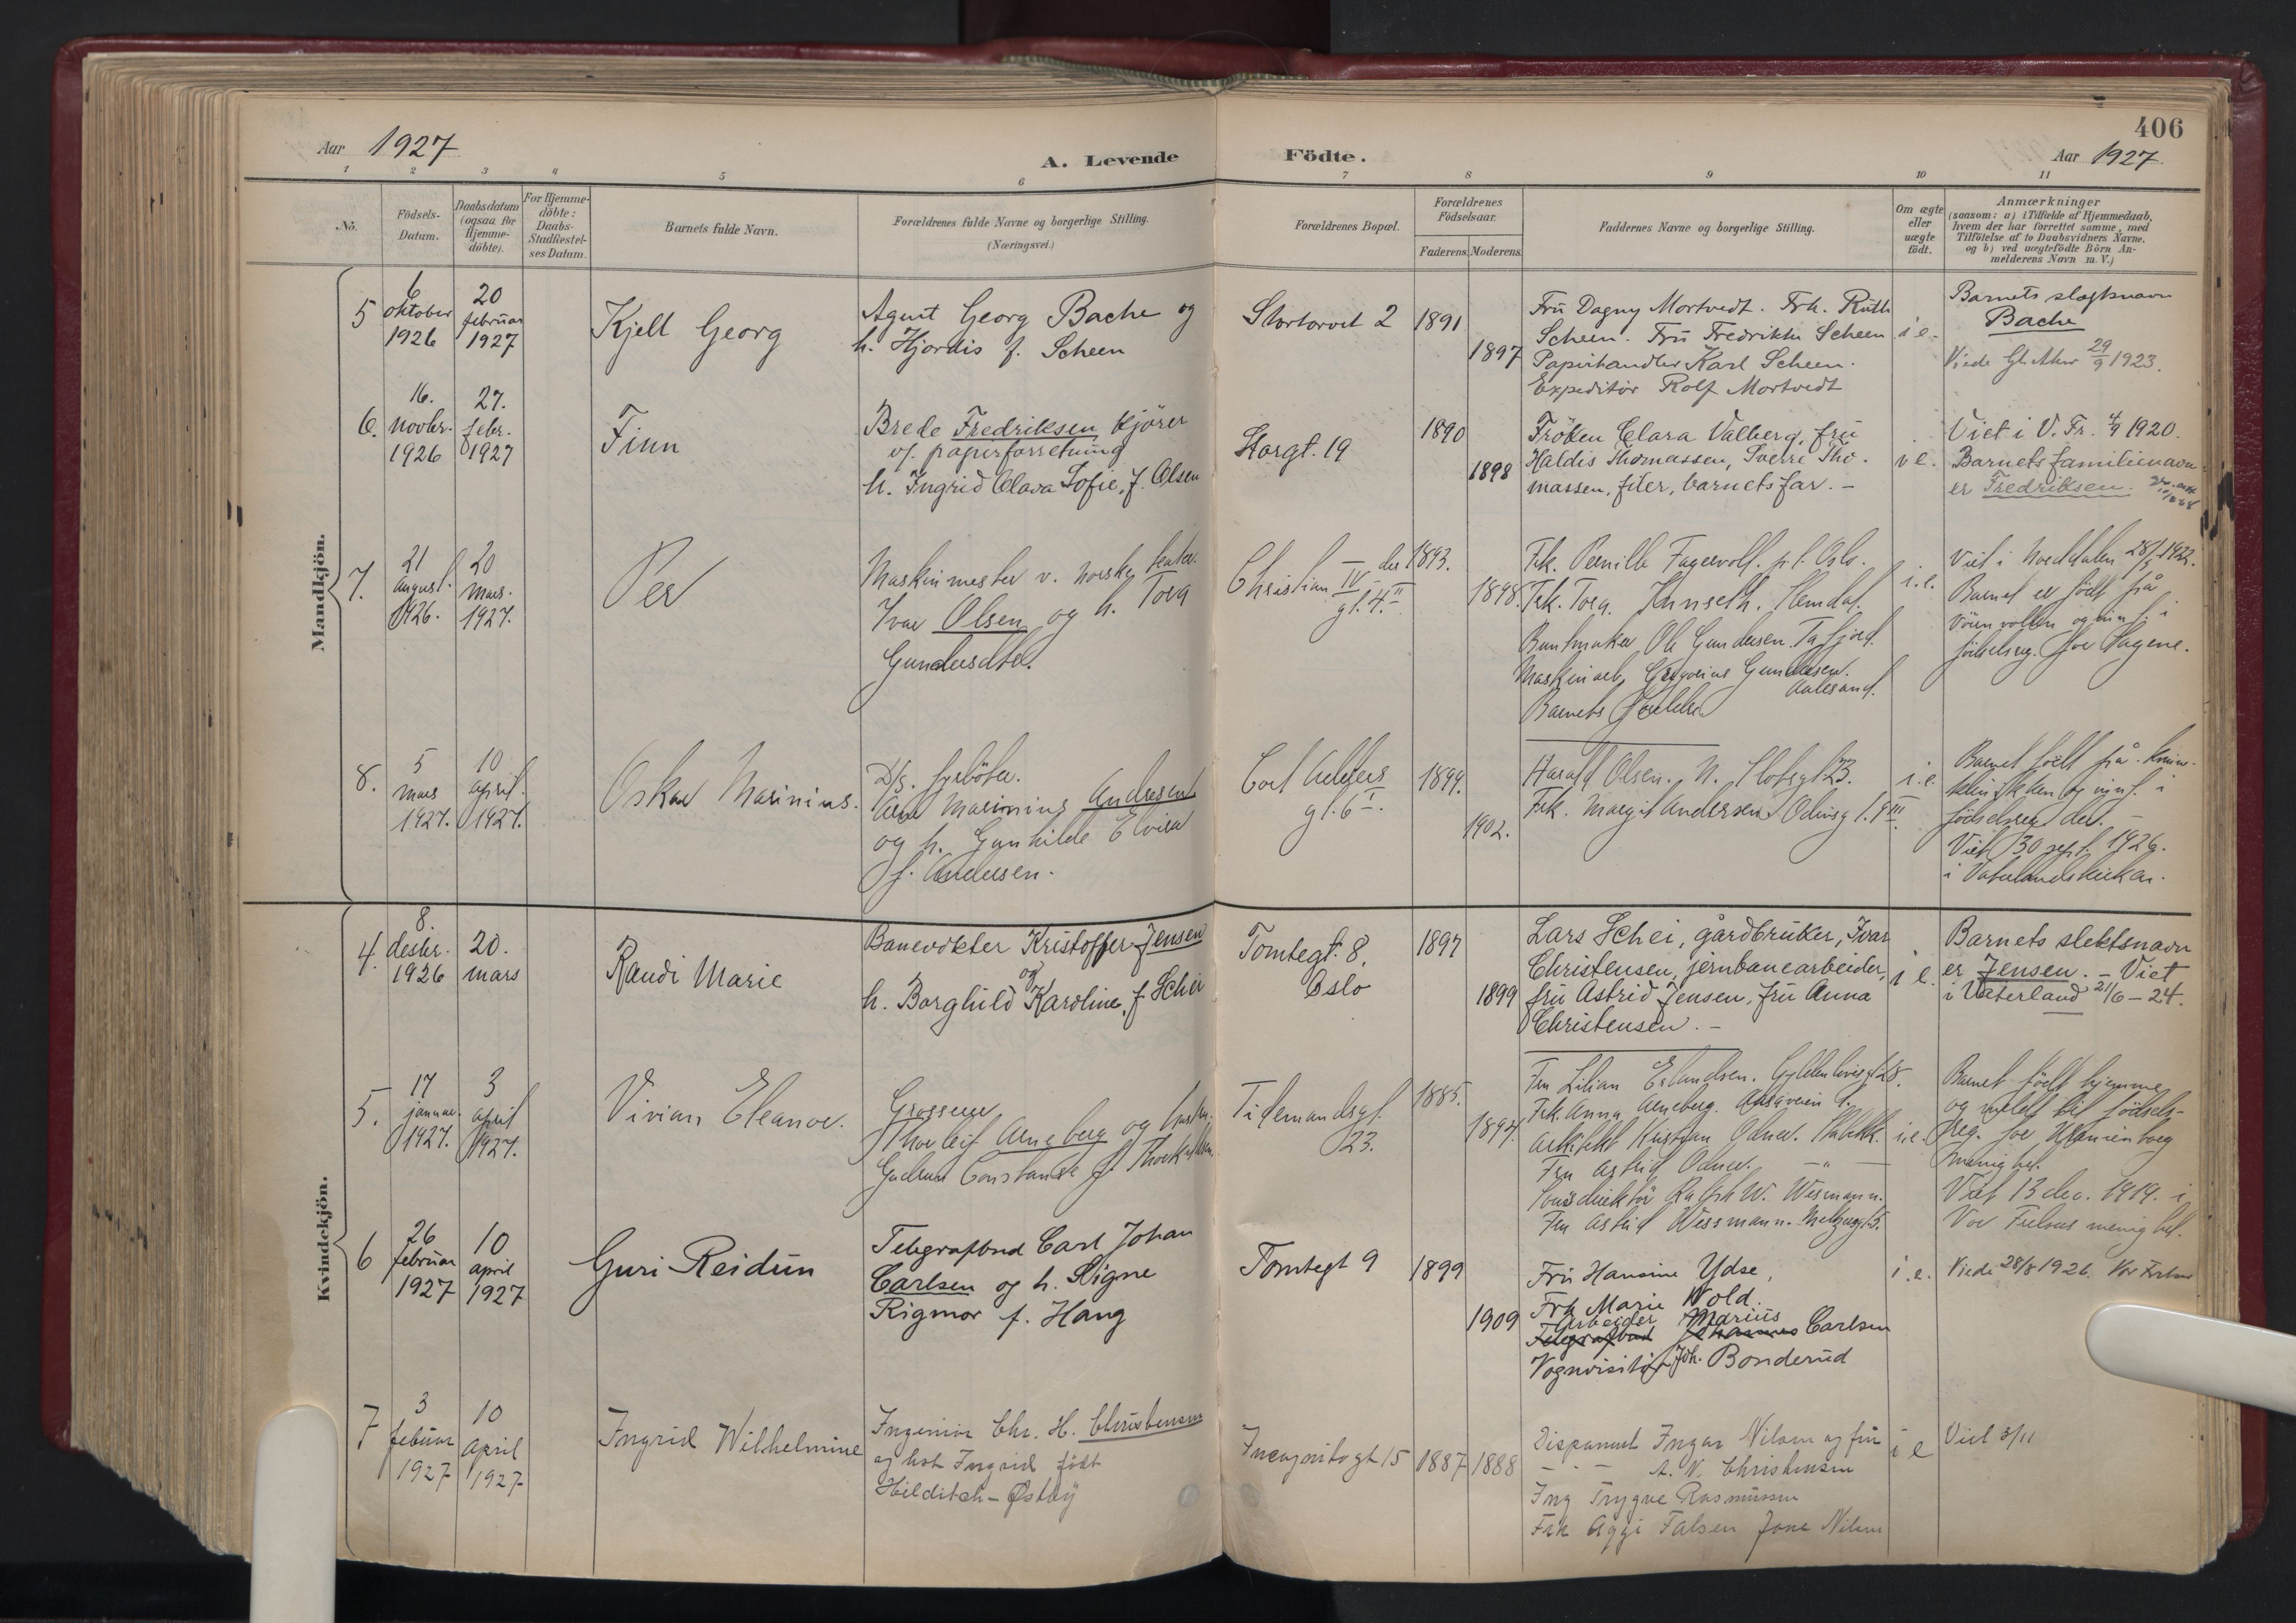 406
Aar 1927
A. Levende Födte.
Aar 1927.
1 2 3 4 5 6 7 8 9 10 11
No.
Födsels-
Datum.
Daabsdatum
(ogsaa for
Hjemme-
döbte).
For Hjemme-
döbte:
Daabs-
Stadfæstel-
ses Datum.
Barnets fulde Navn.
Forældrenes fulde Navne og borgerlige Stilling.
(Næringsvei.)
Forældrenes Bopæl.
Forældrenes
Födselsaar.
Faderens. Moderens.
Faddernes Navne og borgerlige Stilling.
Om ægte
eller
uægte
födt.
Anmærkninger
(saasom: a) i Tilfælde af Hjemmedaab,
hvem der har forrettet samme, med
Tilföielse af to Daabsvidners Navne.
og b) ved uægtefödte Börn An-
melderens Navn m. V.)
Mandkjön.
5
6
oktober
1926
20
februar
1927
Kjell Georg
Agent Georg Bache og
h. Hjordis f. Scheen
Stortorvet 2
1891
1897
Fru Dagny Mortvedt. Frk. Ruth
Scheen. Fru Fredrikke Scheen
Papirhandler Karl Scheen.
Expeditör Rolf Mortvedt
i e.
Barnets slagtsnavn
Bache
Viede Gl. Aker 29/9 1923.
6.
16.
novbr.
1926
27.
febr.
1927
Finn
Brede Fredriksen kjörer
v/. papirforretning
h. Ingrid Clara Sofie, f. Olsen
Storgt. 19
1890
1898
Fröken Clara Valberg, fru
Haldis Thomassen, Sverre Tho-
massen, filer, barnets far. -
i e.
Viet i V. Fr. 4/9 1920.
Barnets familienavn
er Fredriksen.
7.
21
august.
1926.
20
mars.
1927.
Per
Maskinmester v. norske teater.
Ivar Olsen og h. Tora
Gundersdtr.
Christian IV des
gt. 4 II
1893.
1898.
Frk. Pernille Fagervoll. p. t. Oslo.
Frk. Tora
Buntmaker Ole Gundersen. Tafjord.
Maskinarb. Gregorius Gundersen.
Aalesund.
Barnets forældre
i. e.
Viet i Norddalen 1922.
Barnet er födt på
Vöienvollen og innf. i
födselsreg. for Sagene.
8.
5
mars
1927.
10
april.
1927.
Oskar Marinius.
D/s. fyrböter.
Marinius Andresen
og h. Gunhilde Elvira
f. Andersen.
Cort Adelers
gt. 6 I.
1899.
1902.
Harald Olsen. N. Slotsgt 23.
Frk. Margit Andersen. Odinsgt. 9 III.
i. e.
Barnet födt på Kvinne-
klinikken og innf. i
födselsreg der. -
Viet 30 sept. 1926.
i Vaterlands kirke.
Kvindekjön.
4.
8.
desbr.
1926
20.
mars
Randi Marie
Banevokter Kristoffer Jensen
og
h. Borghild Karoline, f. Schei
Tomtegt. 8.
Oslo
1897
1899
Lars Schei, gårdbruker, Ivar
Christensen, jernbanearbeider,
fru Astrid Jensen, fru Anna
Christensen. -
i e.
Barnets slektsnavn
er Jensen. - Viet
i Vaterland 21/6 - 24.
5.
17
januar.
1927.
3
april
1927.
Vivian Eleanor.
Grosserer
Thorleif Arneberg og hustru
Gudrun Constanse f.
Tidemandsgt.
23.
1885.
1897.
Fru Lilian Erlandsen. Gyldenlövesgt 28.
Frk. Anna Arneberg.
Arkitekt Kristian Odner.
Fru Astrid Odner. - " -
Ralph W. Wesmann.
Fru Astrid Wessmann. Meltzersgt 5.
i. e.
Barnet födt hjemme
og meldt til födsels-
reg. for Uranienborg
menighet.
Viet 13 dec. 1919. i
Vor Frelsers menighet.
6
26
februar
1927
10
april
1927
Guri Reidun
Telegrafbud Carl Johan
Carlsen og h. Signe
Rigmor f. Haug
Tomtegt 9
1899
1909
Fru Hansine Ydse,
Frk Marie Wold.
Arbeider Marius
Telegrafbud Johannes Carlsen
Vognvisitör Joh. Bonderud
i. e.
Viede 28/8 1926. Vor Frelser
7
3
februar
1927
10
april
1927
Ingrid Wilhelmine
Ingeniör Chr. H. Christensen
og hst Ingrid födt
Hilditch - Østby
Incognitogt 15
1887
1888
Disponent Ingar Nilsen og fru
- " - A. W. Christensen
Ing Trygve Rasmussen
Frk Aggi Falsen Jone Nilsen
i e
Viet 3/11